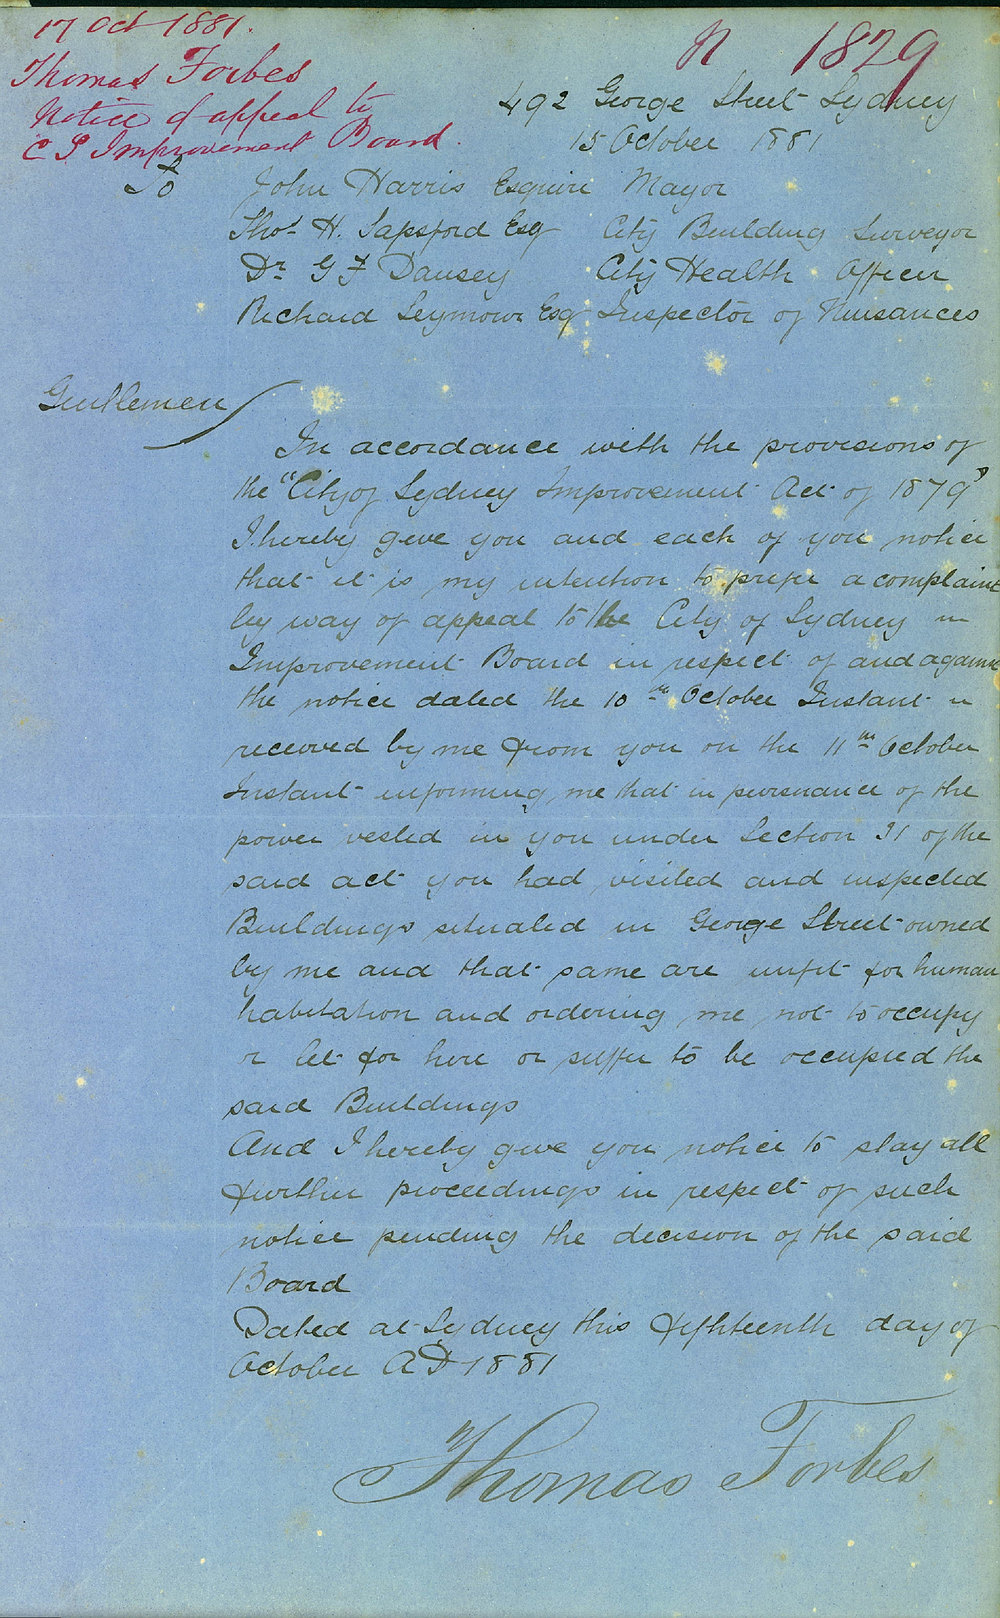 17 Oct 1881.
Thomas Forbes
Notice of appeal to
C S Improvement Board.
N 1829
492 George Street Sydney
15 October 1881
To John Harris Esquire Mayor
Thos H. Sapsford Esq City Building Surveyor
Dr G F Dansey City Health Officer
Richard Seymour Esq Inspector of Nuisances
Gentlemen
In accordance with the provisions of
the "City of Sydney Improvement Act of 1879"
I hereby give you and each of you notice
that it is my intention to prefer a complaint
by way of appeal to the City of Sydney
Improvement Board in respect of and against
the notice dated the 10th October Instant
received by me from you on the 11th October
Instant informing me that in pursuance of the
power vested in you under Section 31 of the
said act you had visited and inspected
Buildings situated in George Street owned
by me and that same are unfit for human
habitation and ordering me not to occupy
or let for hire or suffer to be occupied the
said Buildings
And I hereby give you notice to stay all
further proceedings in respect of such
notice pending the decision of the said
Board
Dated at Sydney this fifteenth day of
October AD 1881
Thomas Forbes